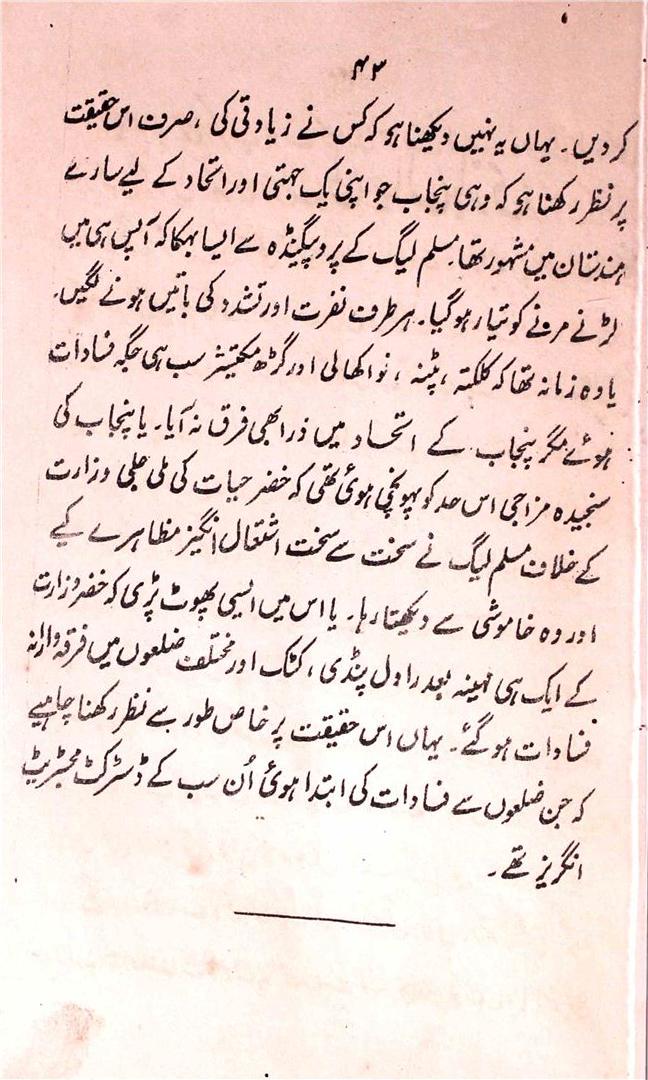 ۴۳
کر دیں۔ یہاں یہ نہیں دیکھنا ہو کہ کس نے زیادتی کی، صرف اس حقیقت
پر نظر رکھنا ہو کہ وہی پنجاب جو اپنی یک جہتی اور اتحاد کے لیے سارے
ہندستان میں مشہور تھا۔ مسلم لیگ کے پروپیگنڈہ سے ایسا بہکا کہ آپس ہی میں
لڑنے مرنے کو تیار ہو گیا۔ ہر طرف نفرت اور تشدد کی باتیں ہونے لگیں۔
یا وہ زمانہ تھا کہ کلکتہ، پٹنہ، نواکھالی اور گڑھ مکتیشر سب ہی جگہ فسادات
ہوئے مگر پنجاب کے اتحاد میں ذرا بھی فرق نہ آیا۔ یا پنجاب کی
سنجیدہ مزاجی اس حد کو پہونچی ہوئی تھی کہ خضر حیات کی ملی جلی وزارت
کے خلاف مسلم لیگ نے سخت سے سخت اشتعال انگیز مظاہرے کیے
اور وہ خاموشی سے دیکھتا رہا۔ یا اس میں ایسی پھوٹ پڑی کہ خضر وزارت
کے ایک ہی مہینہ بعد راول پنڈی، کٹک اور مختلف ضلعوں میں فرقہ وارانہ
فسادات ہو گئے۔ یہاں اس حقیقت پر خاص طور سے نظر رکھنا چاہیے
کہ جن ضلعوں سے فسادات کی ابتدا ہوئی اُن سب کے ڈسٹرکٹ مجسٹریٹ
انگریز تھے۔